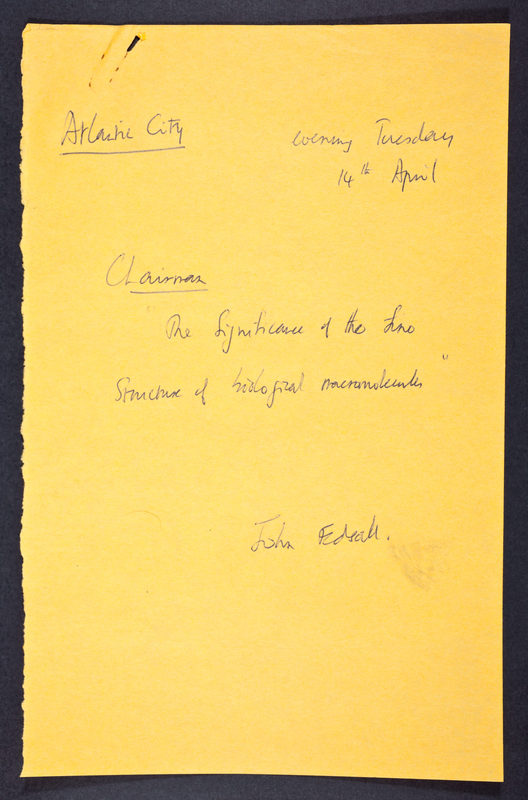 Atlantic City
evening Tuesday
14th April
Chairman
"The Significance of the fine
Structure of biological macromolecules"
John Edsall.